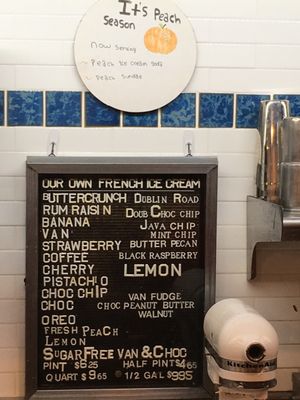 It's Peach
Season
now serving
- Peach Ice cream soda
- peach Sundae
OUR OWN FRENCH ICE CREAM
BUTTERCRUNCH
RUM RAISIN
BANANA
VAN
STRAWBERRY
COFFEE
CHERRY
PISTACHIO
CHOC CHIP
CHOC
OREO
FRESH PEACH
LEMON
DUBLIN ROAD
DOUB CHOC CHIP
JAVA CHIP
MINT CHIP
BUTTER PECAN
BLACK RASPBERRY
LEMON
VAN FUDGE
CHOC PEANUT BUTTER
WALNUT
SUGAR FREE VAN & CHOC
PINT $6.25 HALF PINT $4.65
QUART $9.65 1/2 GAL $995
KitchenAid